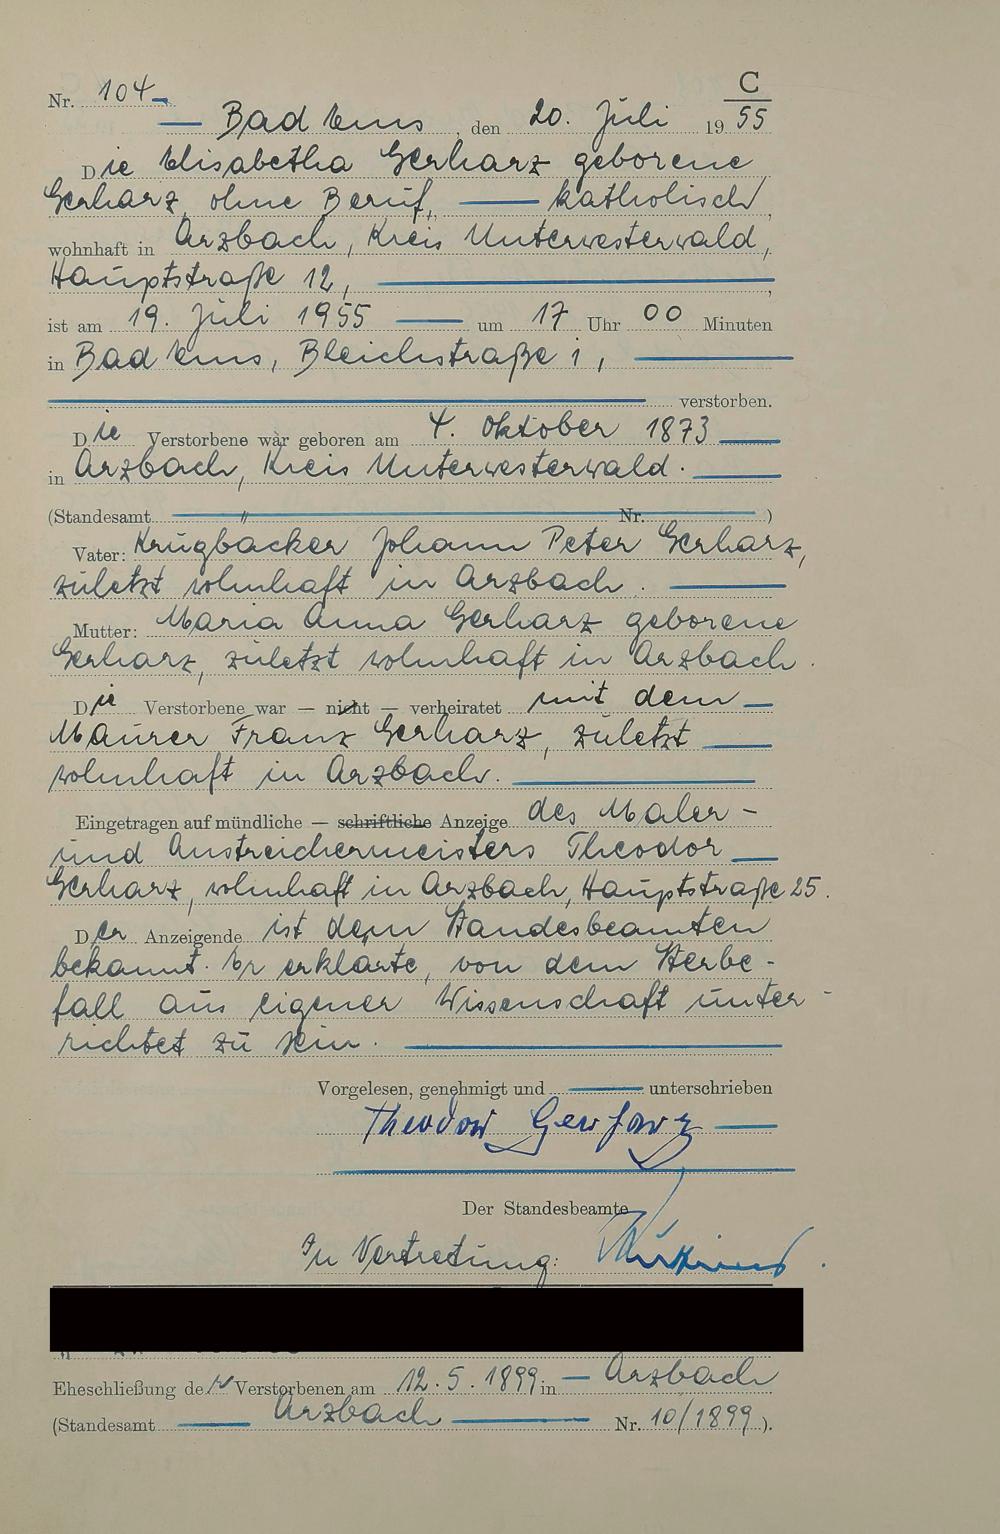 C
Nr. 104
Bad Ems, den 20. Juli 1955
Die Elisabetha Gerharz geborene
Gerharz, ohne Beruf, katholisch,
wohnhaft in Arzbach, Kreis Unterwesterwald,
Hauptstraße 12,
ist am 19. Juli 1955 um 17 Uhr 00 Minuten
in Bad Ems, Bleichstraße 1,
verstorben.
Die Verstorbene war geboren am 4. Oktober 1873
in Arzbach, Kreis Unterwesterwald.
(Standesamt " Nr. )
Vater: Krugbäcker Johann Peter Gerharz,
zuletzt wohnhaft in Arzbach.
Mutter: Maria Anna Gerharz geborene
Gerharz, zuletzt wohnhaft in Arzbach.
Die Verstorbene war — nicht — verheiratet mit dem
Maurer Franz Gerharz, zuletzt
wohnhaft in Arzbach.
Eingetragen auf mündliche — schriftliche Anzeige des Maler-
und Anstreichermeisters Theodor
Gerharz, wohnhaft in Arzbach, Hauptstraße 25.
Der Anzeigende ist dem Standesbeamten
bekannt. Er erklärte, von dem Sterbe-
fall aus eigener Wissenschaft unter-
richtet zu sein.
Vorgelesen, genehmigt und unterschrieben
Theodor Gerharz
Der Standesbeamte
In Vertretung:
Eheschließung der Verstorbenen am 12.5.1899 in Arzbach
(Standesamt Arzbach Nr. 10/1899).